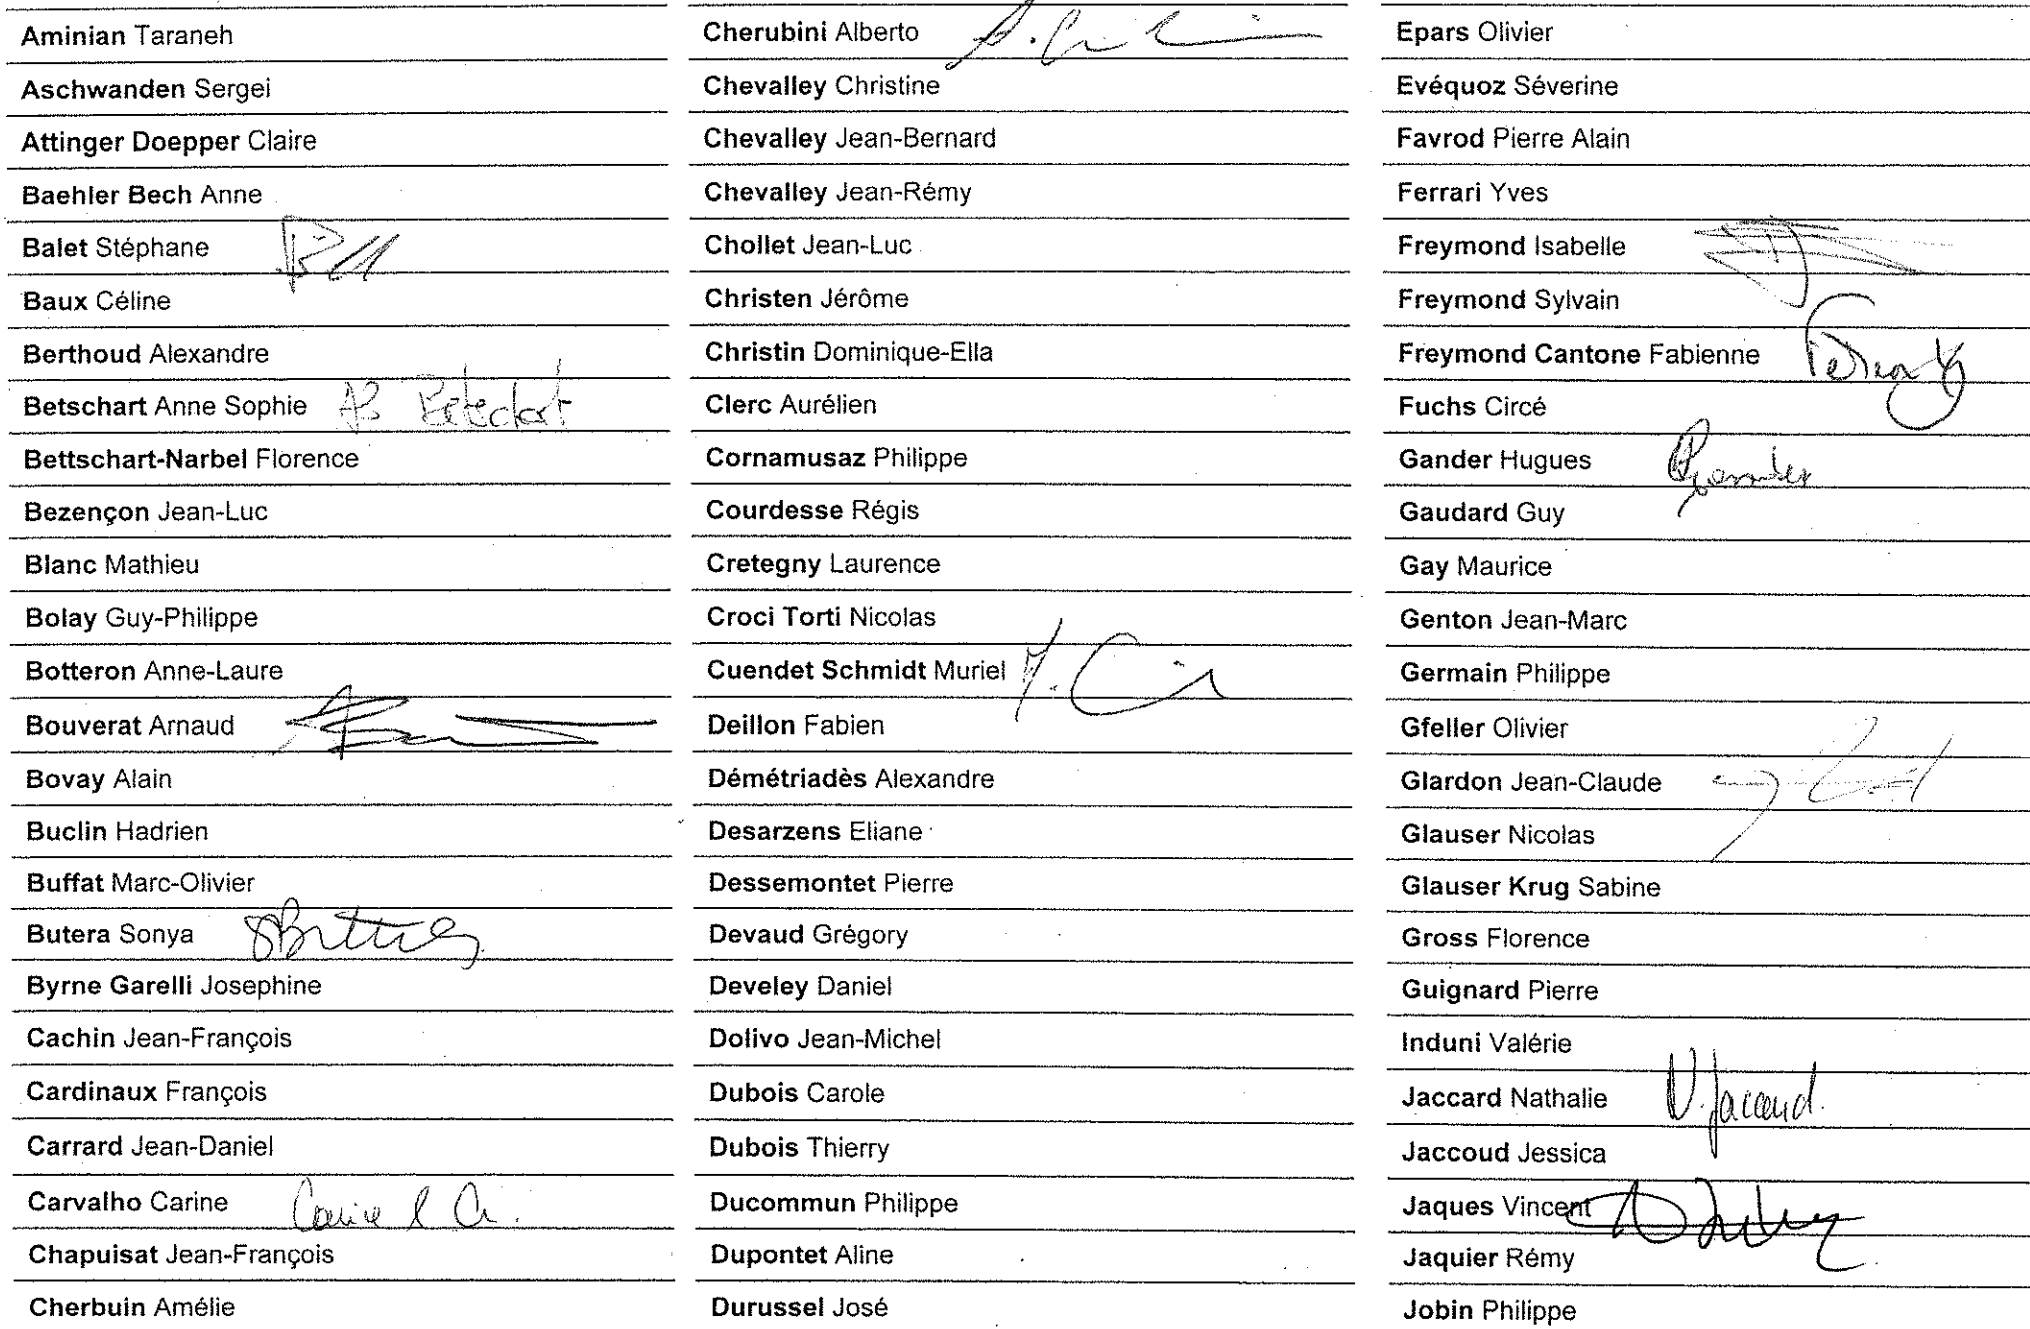 Aminian Taraneh
Aschwanden Sergei
Attinger Doepper Claire
Baehler Bech Anne
Balet Stéphane
Baux Céline
Berthoud Alexandre
Betschart Anne Sophie AS Betschart
Bettschart-Narbel Florence
Bezençon Jean-Luc
Blanc Mathieu
Bolay Guy-Philippe
Botteron Anne-Laure
Bouverat Arnaud
Bovay Alain
Buclin Hadrien
Buffat Marc-Olivier
Butera Sonya
Byrne Garelli Josephine
Cachin Jean-François
Cardinaux François
Carrard Jean-Daniel
Carvalho Carine
Chapuisat Jean-François
Cherbuin Amélie
Cherubini Alberto
Chevalley Christine
Chevalley Jean-Bernard
Chevalley Jean-Rémy
Chollet Jean-Luc
Christen Jérôme
Christin Dominique-Ella
Clerc Aurélien
Cornamusaz Philippe
Courdesse Régis
Cretegny Laurence
Croci Torti Nicolas
Cuendet Schmidt Muriel
Deillon Fabien
Démétriadès Alexandre
Desarzens Eliane
Dessemontet Pierre
Devaud Grégory
Develey Daniel
Dolivo Jean-Michel
Dubois Carole
Dubois Thierry
Ducommun Philippe
Dupontet Aline
Durussel José
Epars Olivier
Evéquoz Séverine
Favrod Pierre Alain
Ferrari Yves
Freymond Isabelle
Freymond Sylvain
Freymond Cantone Fabienne
Fuchs Circé
Gander Hugues
Gaudard Guy
Gay Maurice
Genton Jean-Marc
Germain Philippe
Gfeller Olivier
Glardon Jean-Claude
Glauser Nicolas
Glauser Krug Sabine
Gross Florence
Guignard Pierre
Induni Valérie
Jaccard Nathalie N. Jaccard.
Jaccoud Jessica
Jaques Vincent
Jaquier Rémy
Jobin Philippe